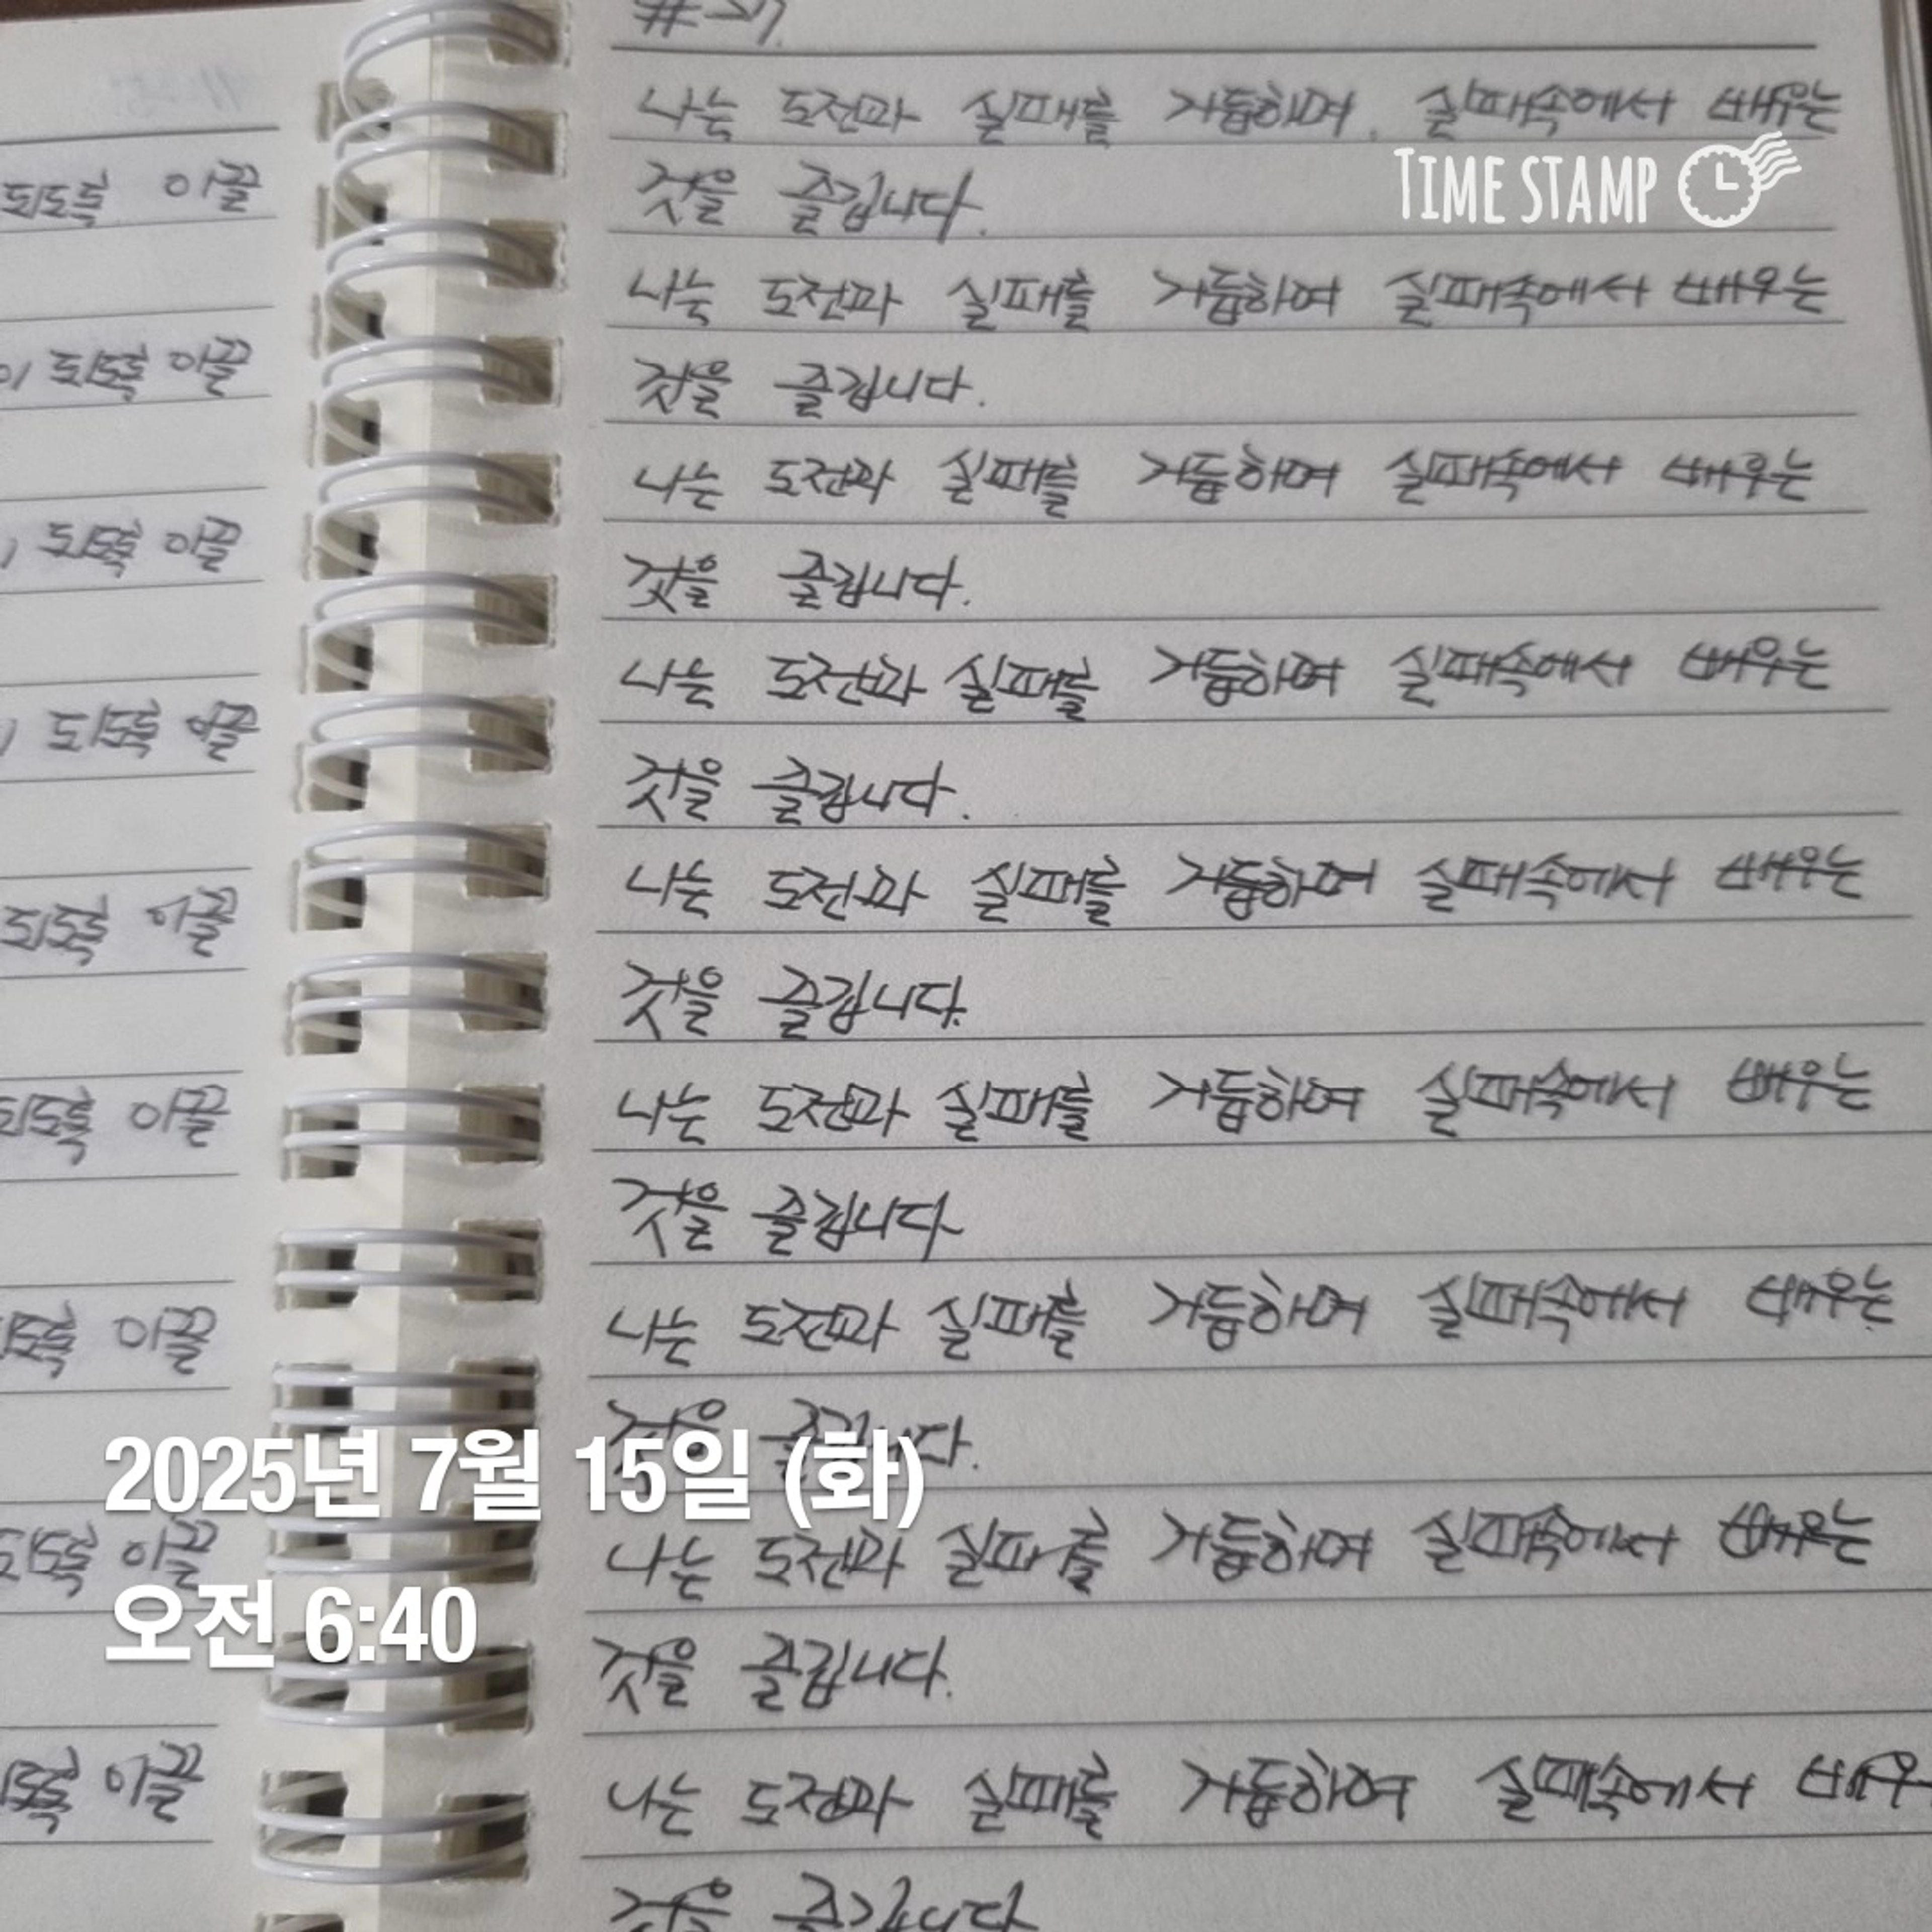 나는 도전과 실패를 거듭하며, 실패속에서 배우는
것을 즐깁니다.
나는 도전과 실패를 거듭하여 실패속에서 배우는
것을 즐깁니다.
나는 도전과 실패를 거듭하며 실패속에서 배우는
것을 즐깁니다.
나는 도전과 실패를 거듭하여 실패속에서 배우는
것을 즐깁니다.
나는 도전과 실패를 거듭하여 실패속에서 배우는
것을 즐깁니다.
나는 도전과 실패를 거듭하여 실패속에서 배우는
것을 즐깁니다
나는 도전과 실패를 거듭하며 실패속에서 배우는
것을 즐깁니다.
나는 도전과 실패를 거듭하여 실패속에서 배우는
것을 즐깁니다.
나는 도전과 실패를 거듭하여 실패속에서 배우
것을 즐깁니다
되도록 이끌
이 되도록 이끌
되도록 이끌
되도록 이끌
되도록 이끌
되도록 이끌
이끌
되도록 이끌
이끌
TIME STAMP
2025년 7월 15일 (화)
오전 6:40